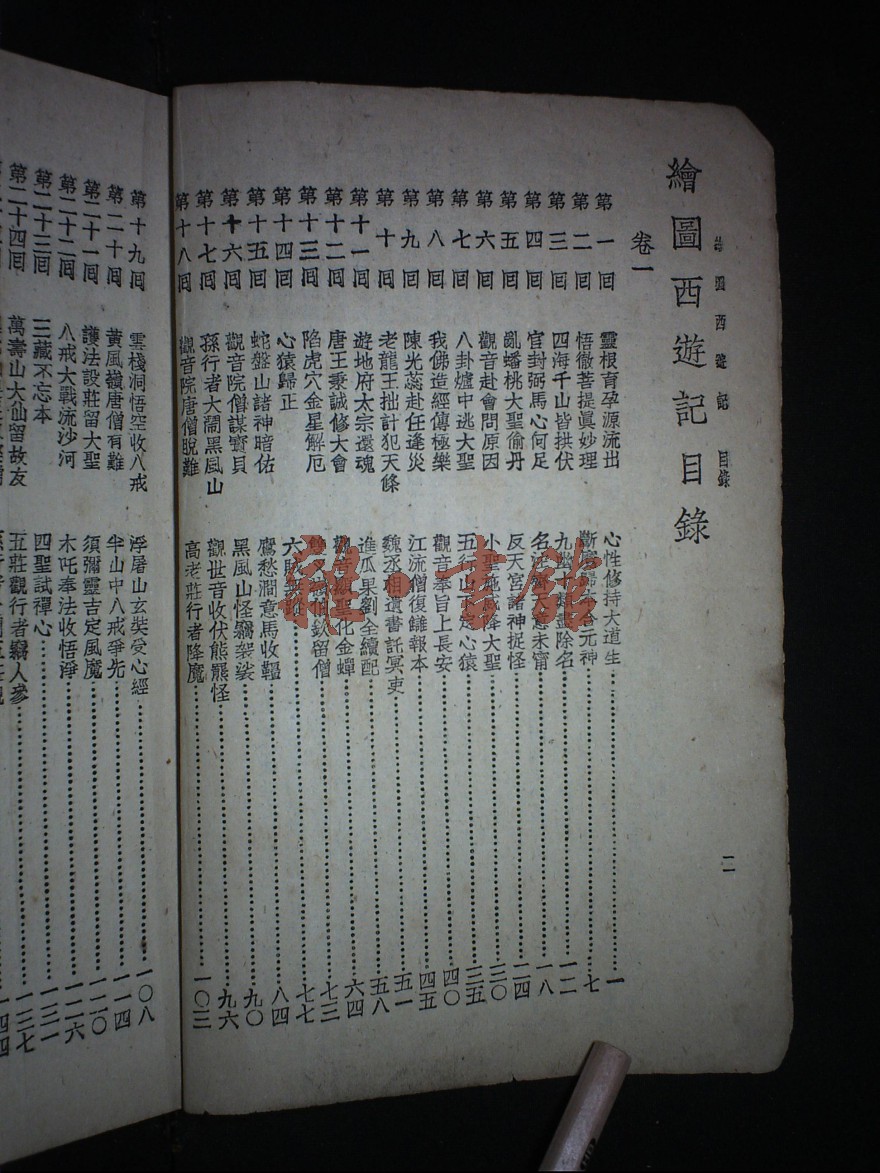 繪圖西遊記目錄
圖西遊記 目錄
二
卷一
第一回 靈根育孕源流出 心性修持大道生 一
第二回 悟徹菩提眞妙理 斷 元神 七
第三回 四海千山皆拱伏 九幽 除名 一二
第四回 官封弼馬心何足 名 意未甯 一八
第五回 亂蟠桃大聖偷丹 反天宮諸神捉怪 二四
第六回 觀音赴會問原因 小聖施威降大聖 三〇
第七回 八卦爐中逃大聖 五行山下定心猿 三五
第八回 我佛造經傳極樂 觀音奉旨上長安 四〇
第九回 陳光蕊赴任逢災 江流僧復讎報本 四五
第十回 老龍王拙計犯天條 魏丞相遺書託冥吏 五一
第十一回 遊地府太宗還魂 進瓜果劉全續配 五八
第十二回 唐王秉誠修大會 觀音顯聖化金蟬 六四
第十三回 陷虎穴金星解厄 欽留僧 七三
第十四回 心猿歸正 六 七七
第十五回 蛇盤山諸神暗佑 鷹愁澗意馬收韁 八四
第十六回 觀音院僧謀寶貝 黑風山怪竊袈裟 九〇
第十七回 孫行者大鬧黑風山 觀世音收伏熊羆怪 九六
第十八回 觀音院唐僧脫難 高老莊行者降魔 一〇三
第十九回 雲棧洞悟空收八戒 浮屠山玄奘受心經 一〇八
第二十回 黃風嶺唐僧有難 半山中八戒爭先 一一四
第二十一回 護法設莊留大聖 須彌靈吉定風魔 一二〇
第二十二回 八戒大戰流沙河 木吒奉法收悟淨 一二六
第二十三回 三藏不忘本 四聖試禪心 一三一
第二十四回 萬壽山大仙留故友 五莊觀行者竊人參 一三七